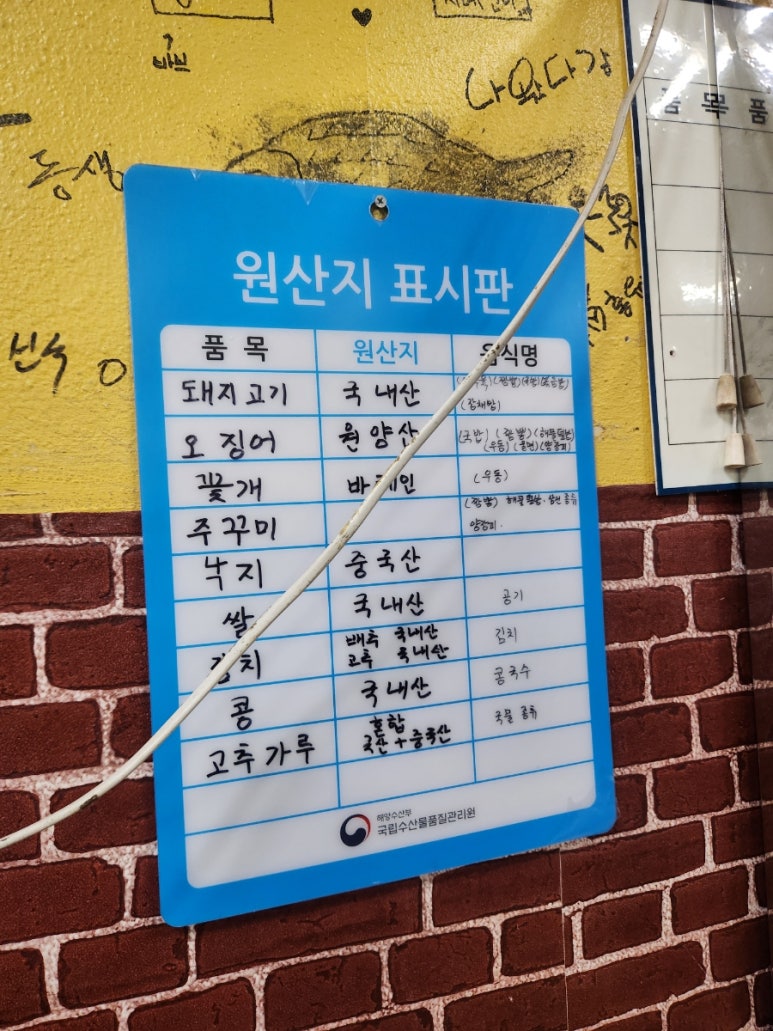 바브
나왔다감
동생
민수
품 목 품
원산지 표시판
품 목 원산지 음식명
돼지고기 국내산 (짬뽕)
(잡채밥)
오징어 원양산 (국밥) (짬뽕)
(우동)
꽃게 바레인 (우동)
주꾸미 (짬뽕)
양장피.
낙지 중국산
쌀 국내산 공기
김치 배추 국내산 김치
고추 국내산
콩 국내산 콩국수
고추가루 혼합 국물 종류
국산+중국산
해양수산부
국립수산물품질관리원